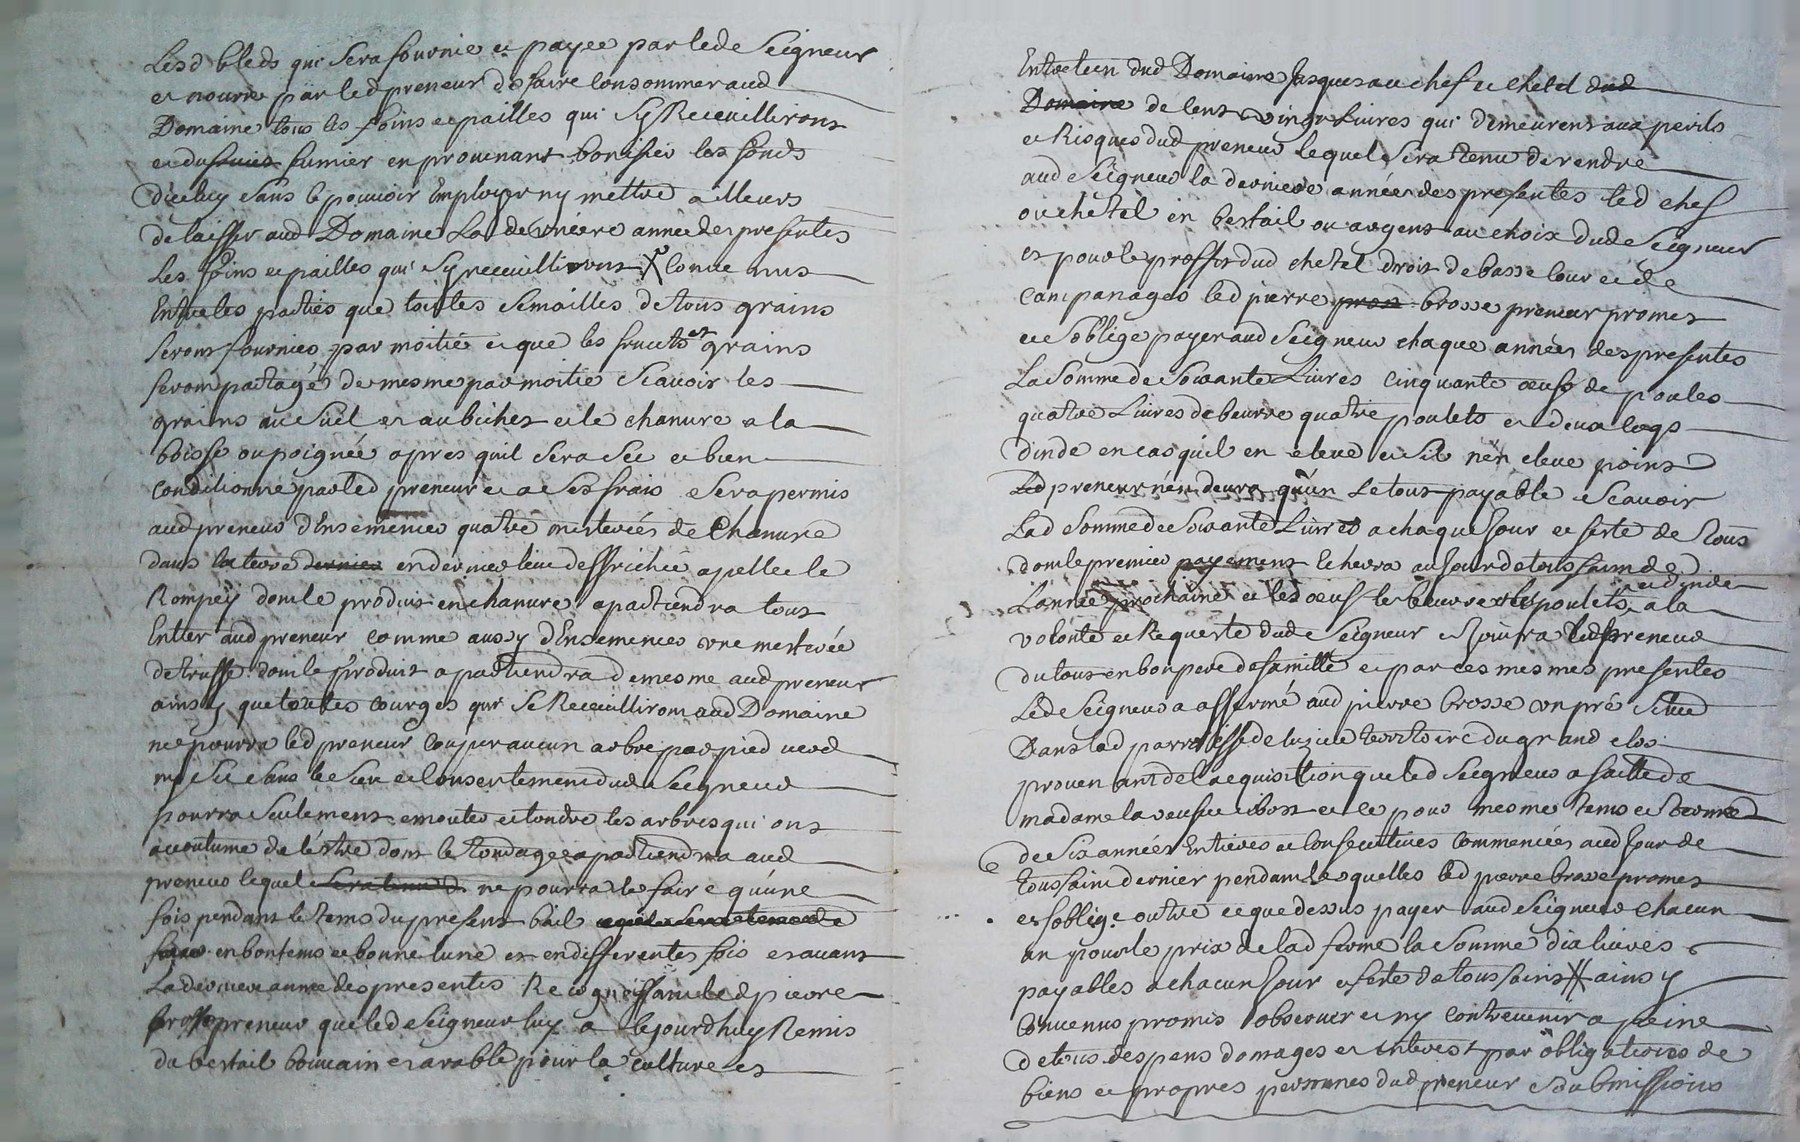 Lesd bleds qui sera fournie et payee par led Seigneur
et nourrie par led preneur de faire consommer aud
Domaine tous les foins et pailles qui sy Receuilliront
et du fumier en provenant bonifier les fonds
diceluy sans le pouvoir Employer ny mettre ailleurs
delaisser aud Domaine La derniere année des presentes
Les foins et pailles qui sy receuilliront convenus
Entre les parties que toutes semailles de tous grains
seront fournies par moitié et que les fruits et grains
seront partagé de mesme par moitié Scavoir les
grains au Suel et au bichet et le chanvre a la
boisse ou poignée apres quil sera Sec et bien
conditionné par led preneur et a ses frais Sera permis
aud preneur d'Ensemencer quatre mesterées de Chanvre
dans la terre dernier en dernier lieu deffrichée apellée le
Rompey dont le produit en chanvre apartiendra tout
Entier aud preneur comme aussy d'Ensemencer une mesterée
de truffe dont le produit apartiendra de mesme aud preneur
ainsy que toutes courges qui se Receuilliront aud Domaine
ne pourra led preneur couper aucun arbre par pied verd
ny Sec sans le Sceu et consentement dud Seigneur
pourra seulement emonder et tondre les arbres qui ont
accoutume de l'éstre dont le tondage apartiendra aud
preneur lequel sera tenu de ne pourra le faire qu'une
fois pendant le tems du present bail
faire en bon tems et bonne lune et en differentes fois et avant
La derniere année des presentes Recognoissant led pierre
brosse preneur que led Seigneur luy a cejourdhuy Remis
du bestail bouvain et arable pour la culture et
Entretien dud Domaine Jusques au chef et chetel dud
Domaine de cent vingt Livres qui demeurent aux perils
et Risques dud preneur lequel sera tenu de rendre
aud Seigneur la derniere année des presentes led chef
ou chetel en bestail ou argent au choix dud Seigneur
et pour le proffit dud chetel droit de basse cour et de
campanages led pierre brosse preneur promet
et s'oblige payer aud Seigneur chaque année des presentes
La Somme de Soixante Livres Cinquante œufs de poules
quatre Livres de beurre quatre poulets et deux coqs
dinde en cas qu'il en eleve et s'il n'en eleve point
Led preneur n'en devra qu'un Le tout payable Scavoir
Lad Somme de Soixante Livres a chaque Jour et feste de Tous
dont le premier payement echerra au Jour de toussaint de
L'année prochaine et les œufs le beurre et les poulets et d'inde a la
volonté et Requeste dud Seigneur Jouira led preneur
du tout en bon pere de famille et par ces mesmes presentes
Led Seigneur a affermé aud pierre brosse un pré Situé
Dans lad parroisse de territoire du grand clos
provenant de l'acquisition que led Seigneur a faitte de
madame la veufve et ce pour mesme tems et terme
de Six années Entieres et consecutives commencées aud Jour de
toussaint dernier pendant lesquelles led pierre brosse promet
et soblige outre ce que dessus payer aud Seigneur chacun
an pour le prix de lad ferme la somme dix livres
payables a chacun Jour et feste de toussaint ainsy
convenus promis observer et ny contrevenir a peine
de tous despens domages et interest par obligations de
biens et propres personnes dud preneur submissions